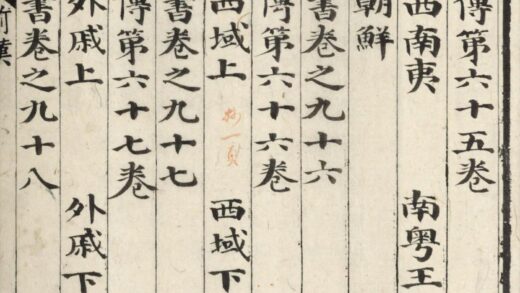 傳第六十五卷
西南夷 南粤王
朝鮮
書卷之九十六
傳第六十六卷
西域上 西域下
書卷之九十七
傳第六十七卷
外戚上 外戚下
書卷之九十八
前漢